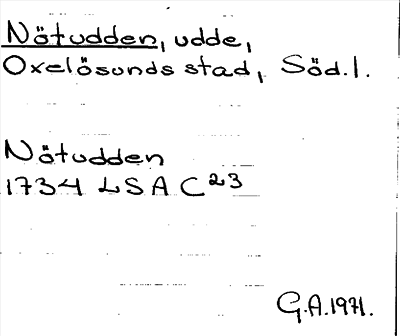 Nötudden, udde,
Oxelösunds stad, Söd.l.
Nötudden
1734 LSA C23
G.A.1971.